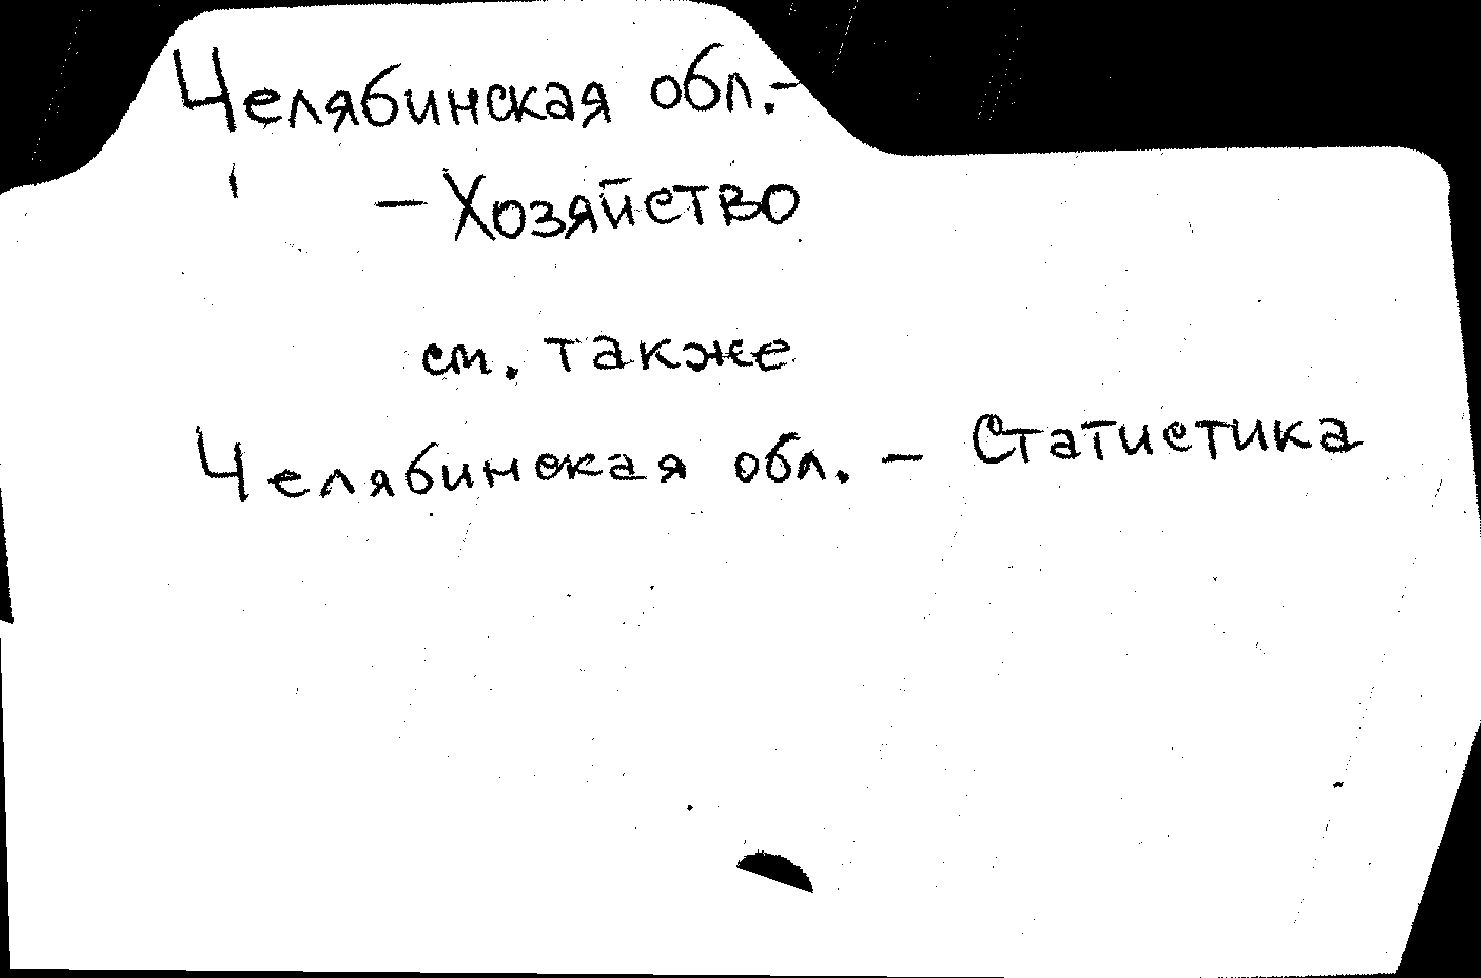 Челябинская обл.-
- Хозяйство
см. также
Челябинская обл. - Статистика